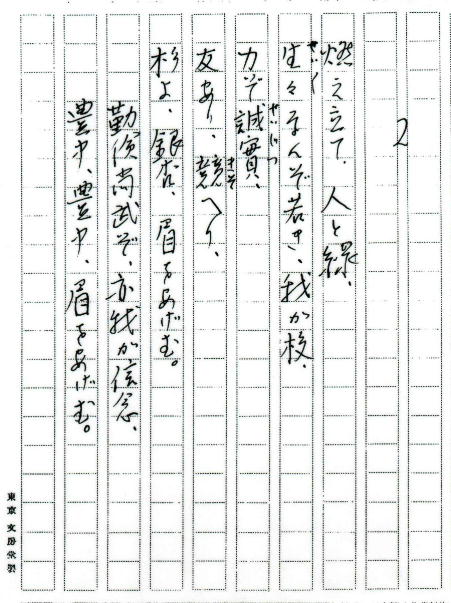 2
燃え立て、人と緑、
せい〱
生々なんぞ若き、我が校、
せいじつ
力ぞ誠實、
きそ
友あり、競へり、
杉よ、銀杏、眉をあげむ。
勤儉尚武ぞ、亦我が信念、
豊中、豊中、眉をあげむ。
東京 文房堂製